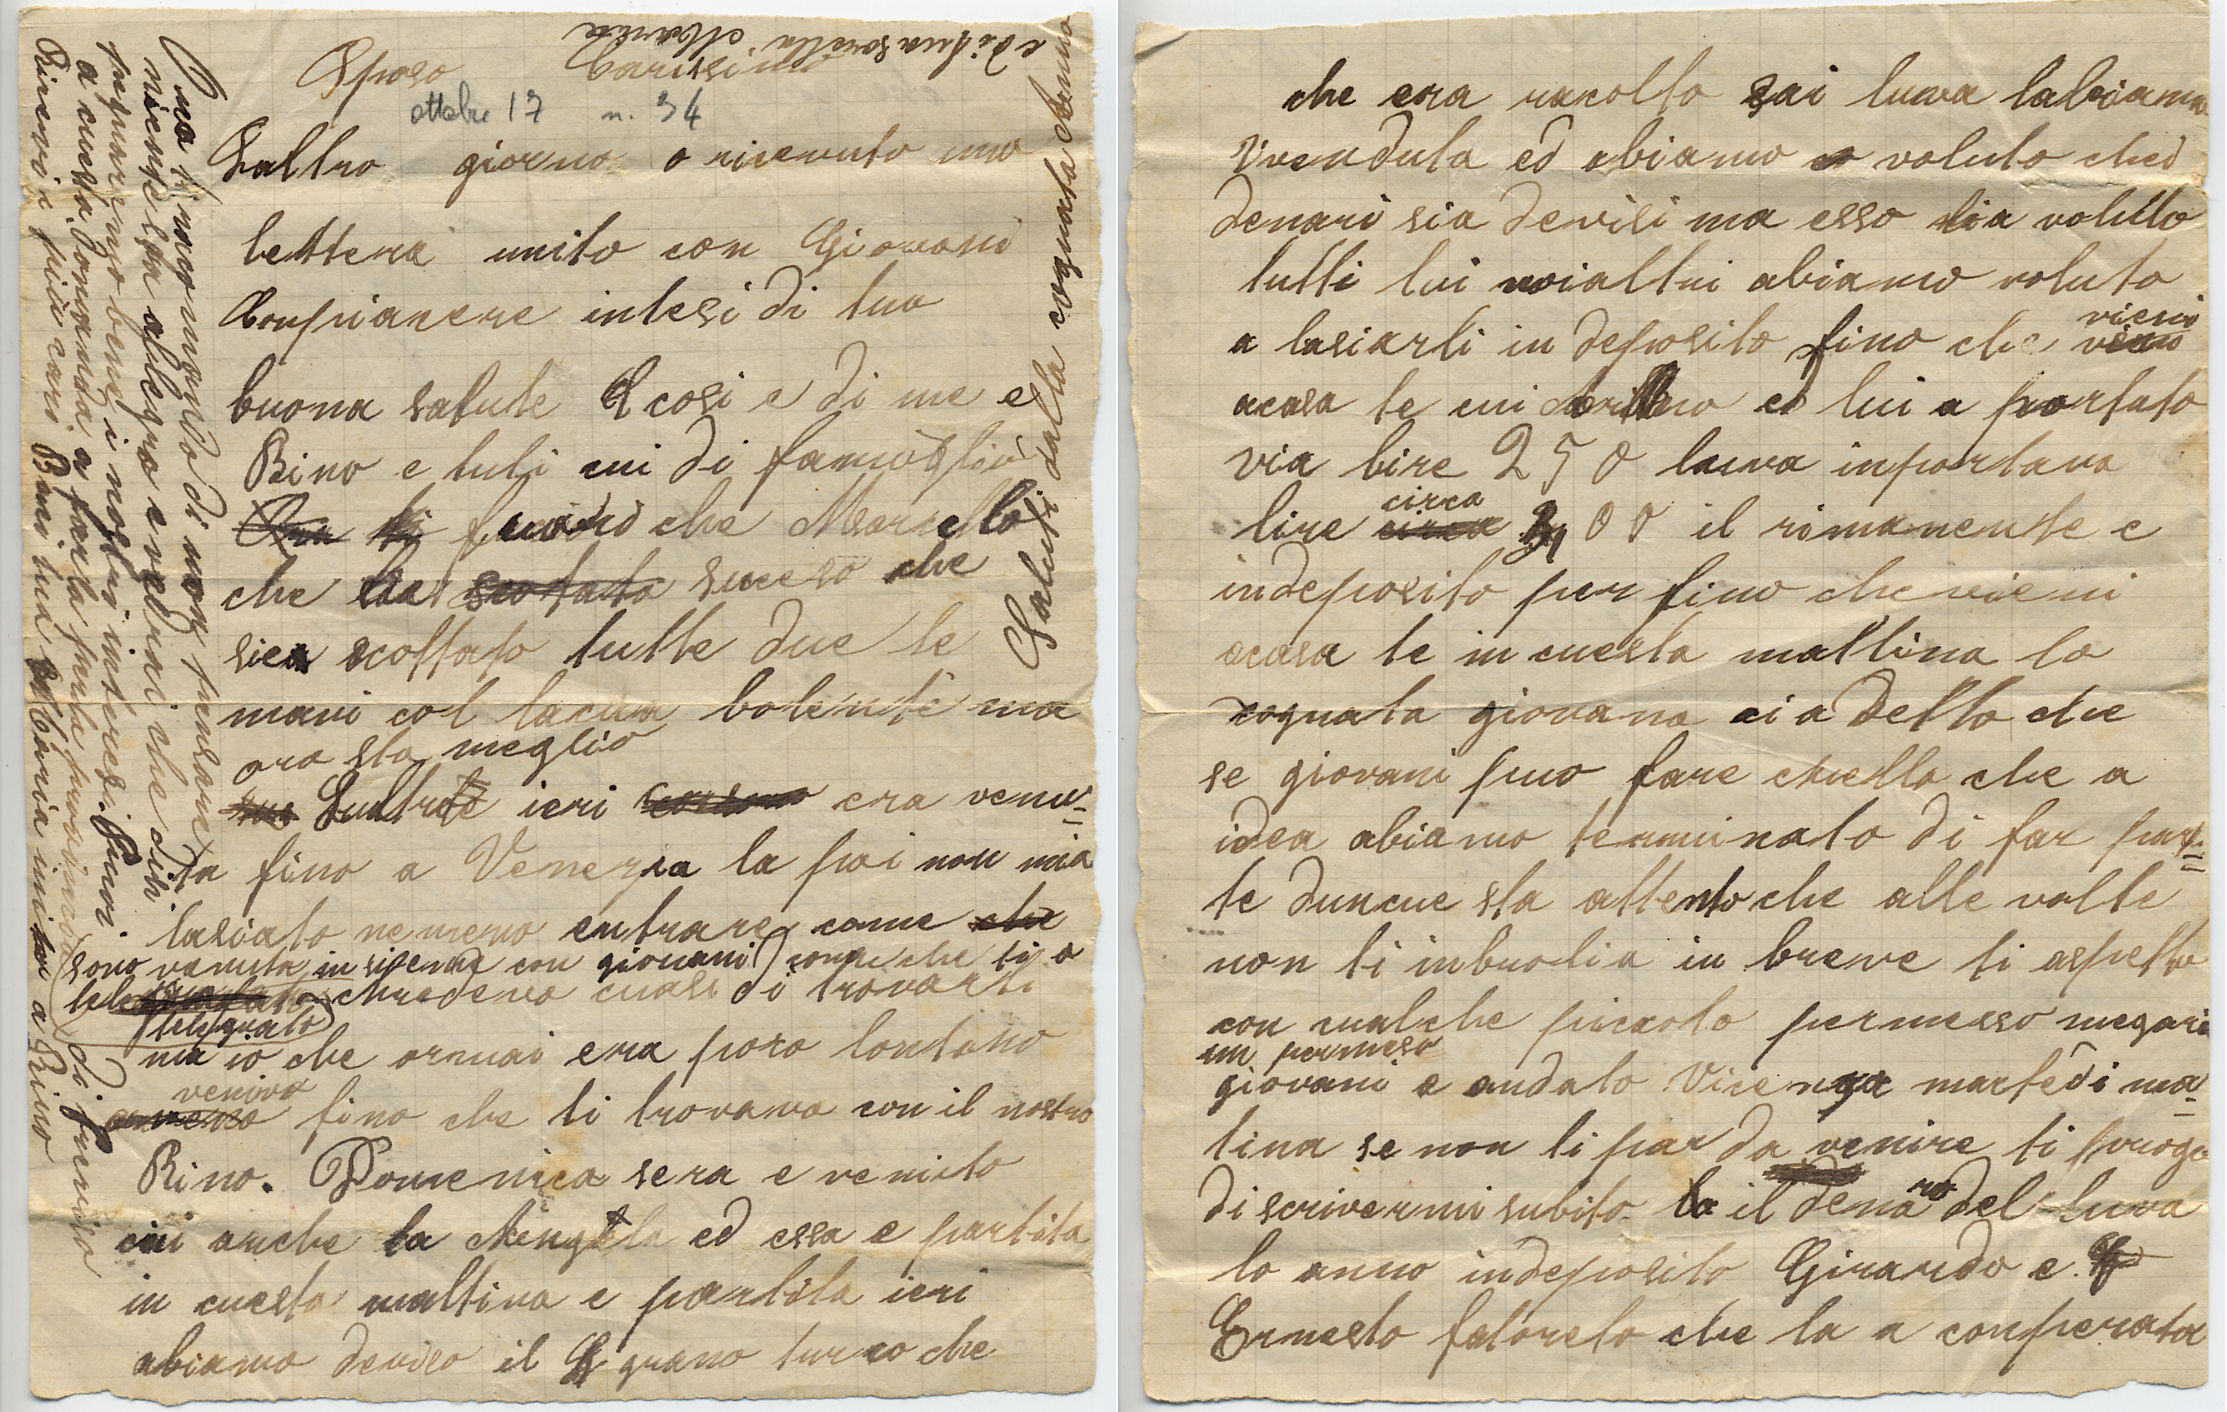 Sposo Carissimo
ottobre 17 n. 34
Laltro giorno o ricevuto una
lettera unito con Giovani
Conpiacere intesi di tua
buona salute E cosi e di me e
Rino e tuti cui di famiglia
Ora ti fuori che Marcello
che sucesso che
siea scottato tutte due le
mani col lacua bolente ma
ora sta meglio
Lultro ieri era venu=
ta fino a Venezia la poi non mia
lasciato nemeno entrare come che
sono venuta insieme con giovani come che ti o
telegrafato chredevo cuasi di trovarti
ma io che ormai era poco lontano
veniva fino che ti trovava con il nostro
Rino. Domenica sera e venuto
cui anche la Angela ed essa e partita
in cuesta mattina e partita ieri
abiamo deviso il grano turco che
che era racolto sai luva labiamo
vvenduta ed abiamo voluto ched
denari sia devisi ma esso lia voluto
tutti lui noialtri abiamo voluto
a lasiarli in deposito fino che vieni
acasa te ed lui a portato
via lire 250 luva inportava
lire circa 00 il rimanente e
indeposito per fino che vieni
acasa te in cuesta mattina la
cognata giovana ci a detto che
se giovani puo fare cuello che a
idea abiamo terminato di far par=
te duncue sta attento che alle volte
non ti inbrolia in breve ti aspetto
con cualche piccolo permesso megari
un permeso
giovani e andato Vicenza martedi ma=
tina se non ti par da venire ti prego
di scrivermi subito il denaro del luva
lo anno indeposito Girardo e
Ernesto fatoreto che la a conperata
Ora ti racomando di non pensare
niente sta alegro e vedrai che dili
peraremo bene i nostri interesi. Puoi
a cuesta domanda a farla per la provincia di Treviso
Ricevi i più cari Baci tua Maria unita a Rino
Saluti dalla cognata Anna
e di tua sorella Maria